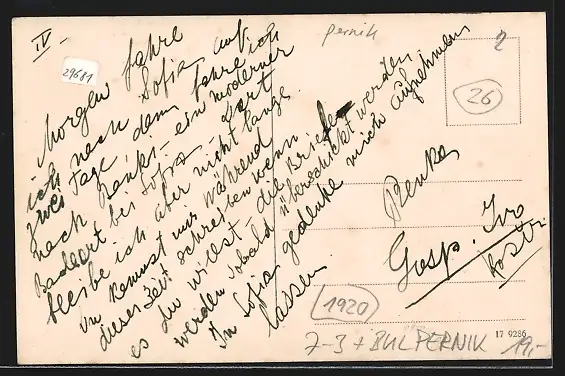 IV
29681
Morgen fahre
ich nach Sofia auf
zwei Tage, dann fahre ich
nach Banki - ein moderner
Badeort bei Sofia. Dort
bleibe ich aber nicht lange.
Du kannst mir während
dieser Zeit schreiben wenn
es du willst - die Briefe
werden sobald überschickt werden
In Sofia gedenke mich aufnehmen
lassen
pernik
2
26
Renka
Gosp. Ivo
1920
7-3 + BUL PERNIK 19,-
17 9286